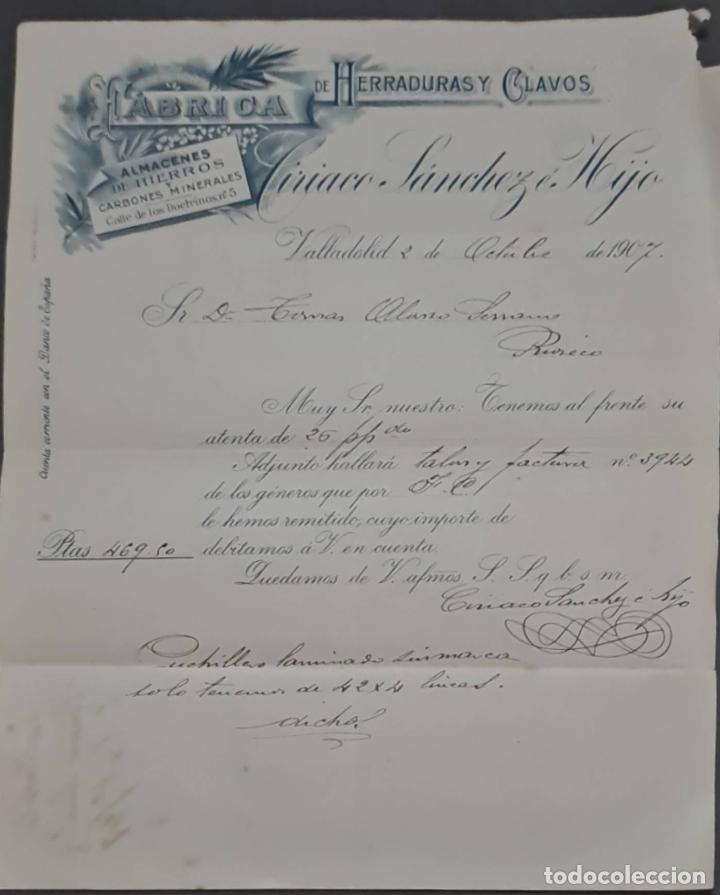 FÁBRICA DE HERRADURAS Y CLAVOS
ALMACENES
DE HIERROS
Y
CARBONES MINERALES
Calle de los Doctrinos, nº 5
Ciriaco Sánchez é Hijo
Valladolid 2 de Octubre de 1907.
Cuenta corriente con el Banco de España
Sr. Dn. Tomas Alonso Serrano
Rioseco
Muy Sr. nuestro: Tenemos al frente su
atenta de 26 pp do
Adjunto hallará talon y factura nº 3944
de los géneros que por F. C.
le hemos remitido, cuyo importe de
Ptas. 469.50 debitamos á V. en cuenta.
Quedamos de V. afmos. S. S. q. b. s. m.
Ciriaco Sanchez é hijo
Cuchillero laminado sin marca
solo tenemos de 42 x 4 lineas.
dichos
todocoleccion.net